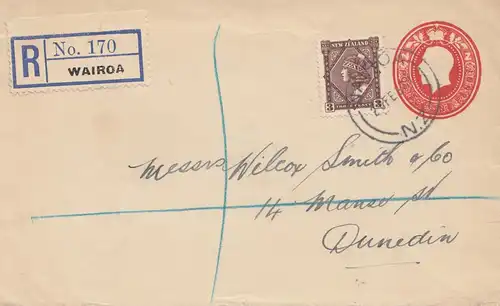 R No. 170
WAIROA
NEW ZEALAND
3 3
N.Z.
Messrs Wilcox Smith & Co
14 Manse St
Dunedin